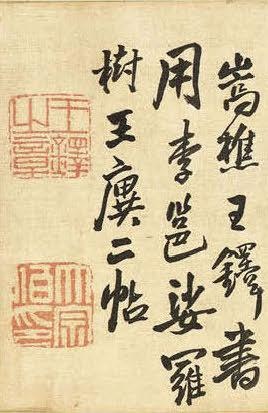 嵩樵王鐸書
用李邕娑羅
樹王廙二帖
王鐸
之章
大宗
伯印